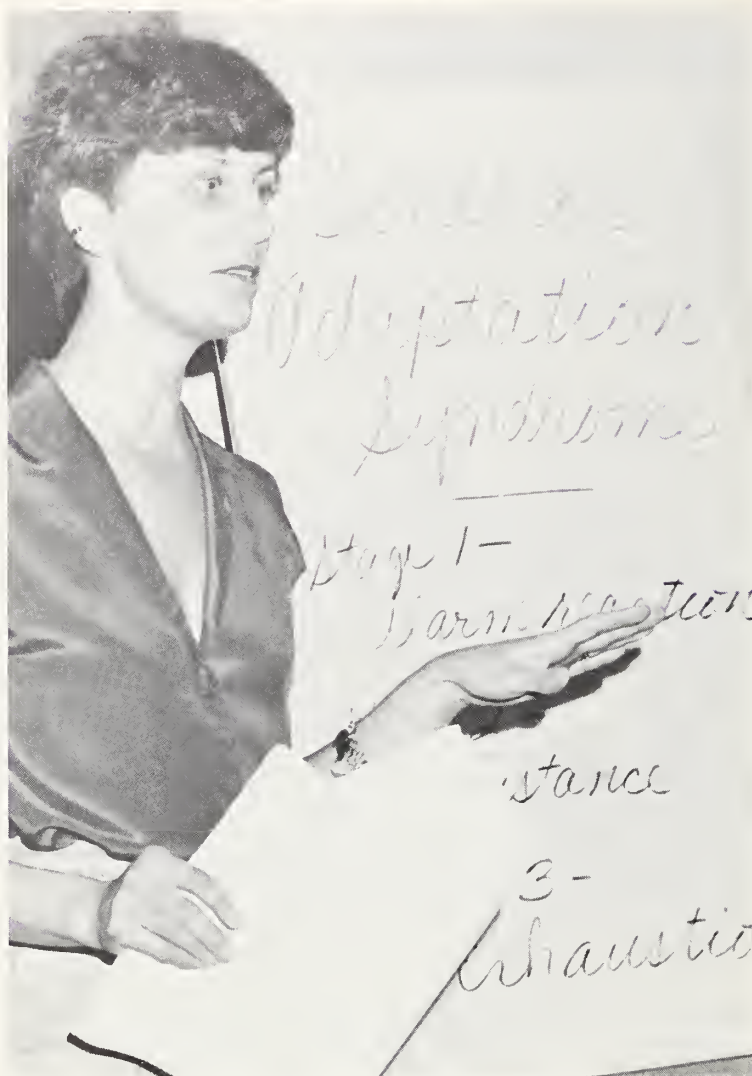 Adaptation
Syndrome
Stage 1-
larm reaction
stance
3-
exhaustio